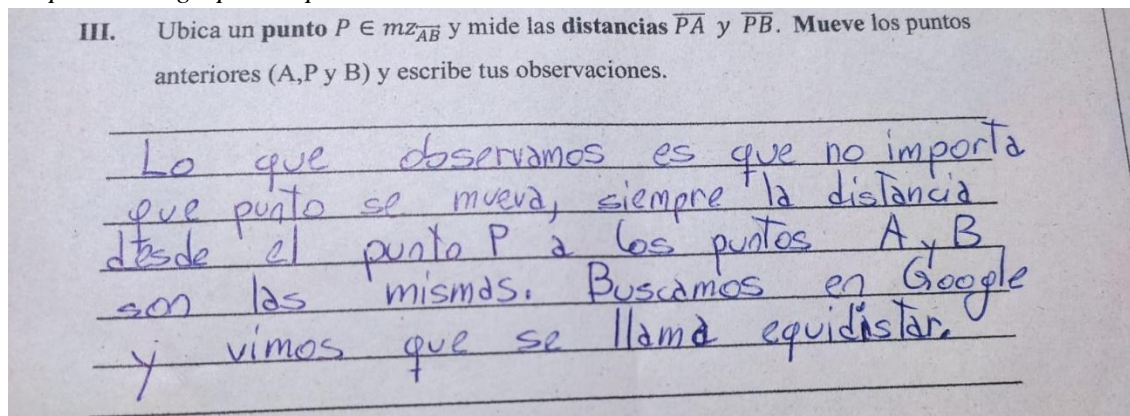 III. Ubica un punto P ∈ mz_AB y mide las distancias PA y PB. Mueve los puntos
anteriores (A,P y B) y escribe tus observaciones.
Lo que observamos es que no importa
que punto se mueva, siempre la distancia
desde el punto P a los puntos A y B
son las mismas. Buscamos en Google
y vimos que se llama equidistar.